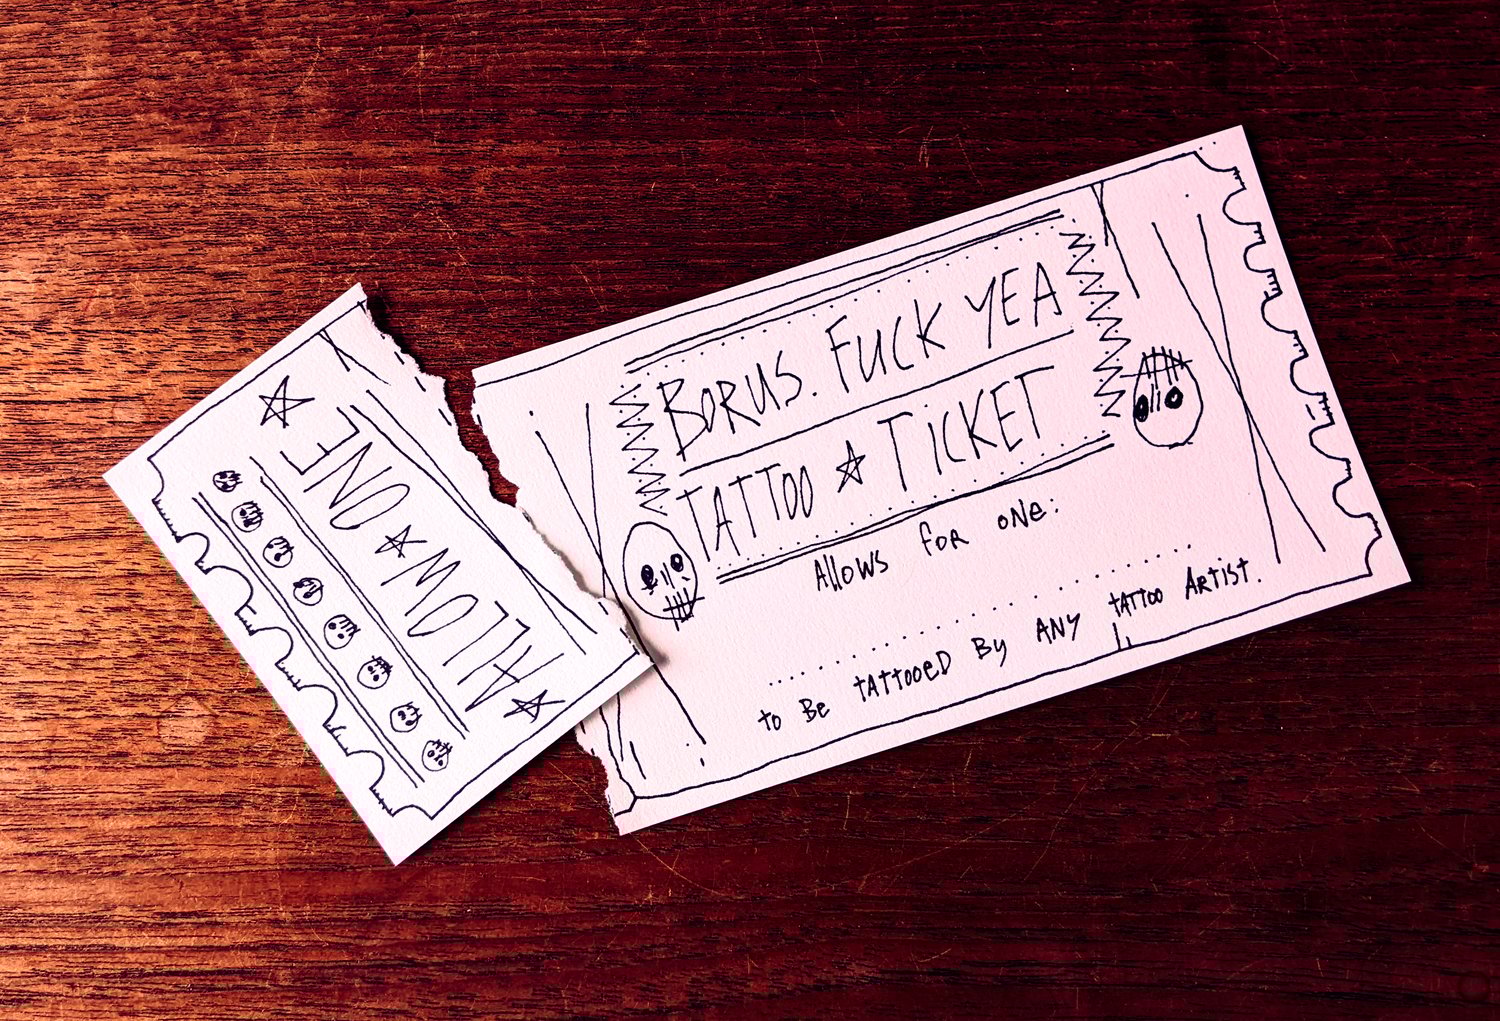 ALLOW ☆ ONE
BORUS. FUCK YEA
TATTOO ☆ TICKET
ALLOWS FOR ONE:
to Be tAttooeD By ANy tAttoo Artist.